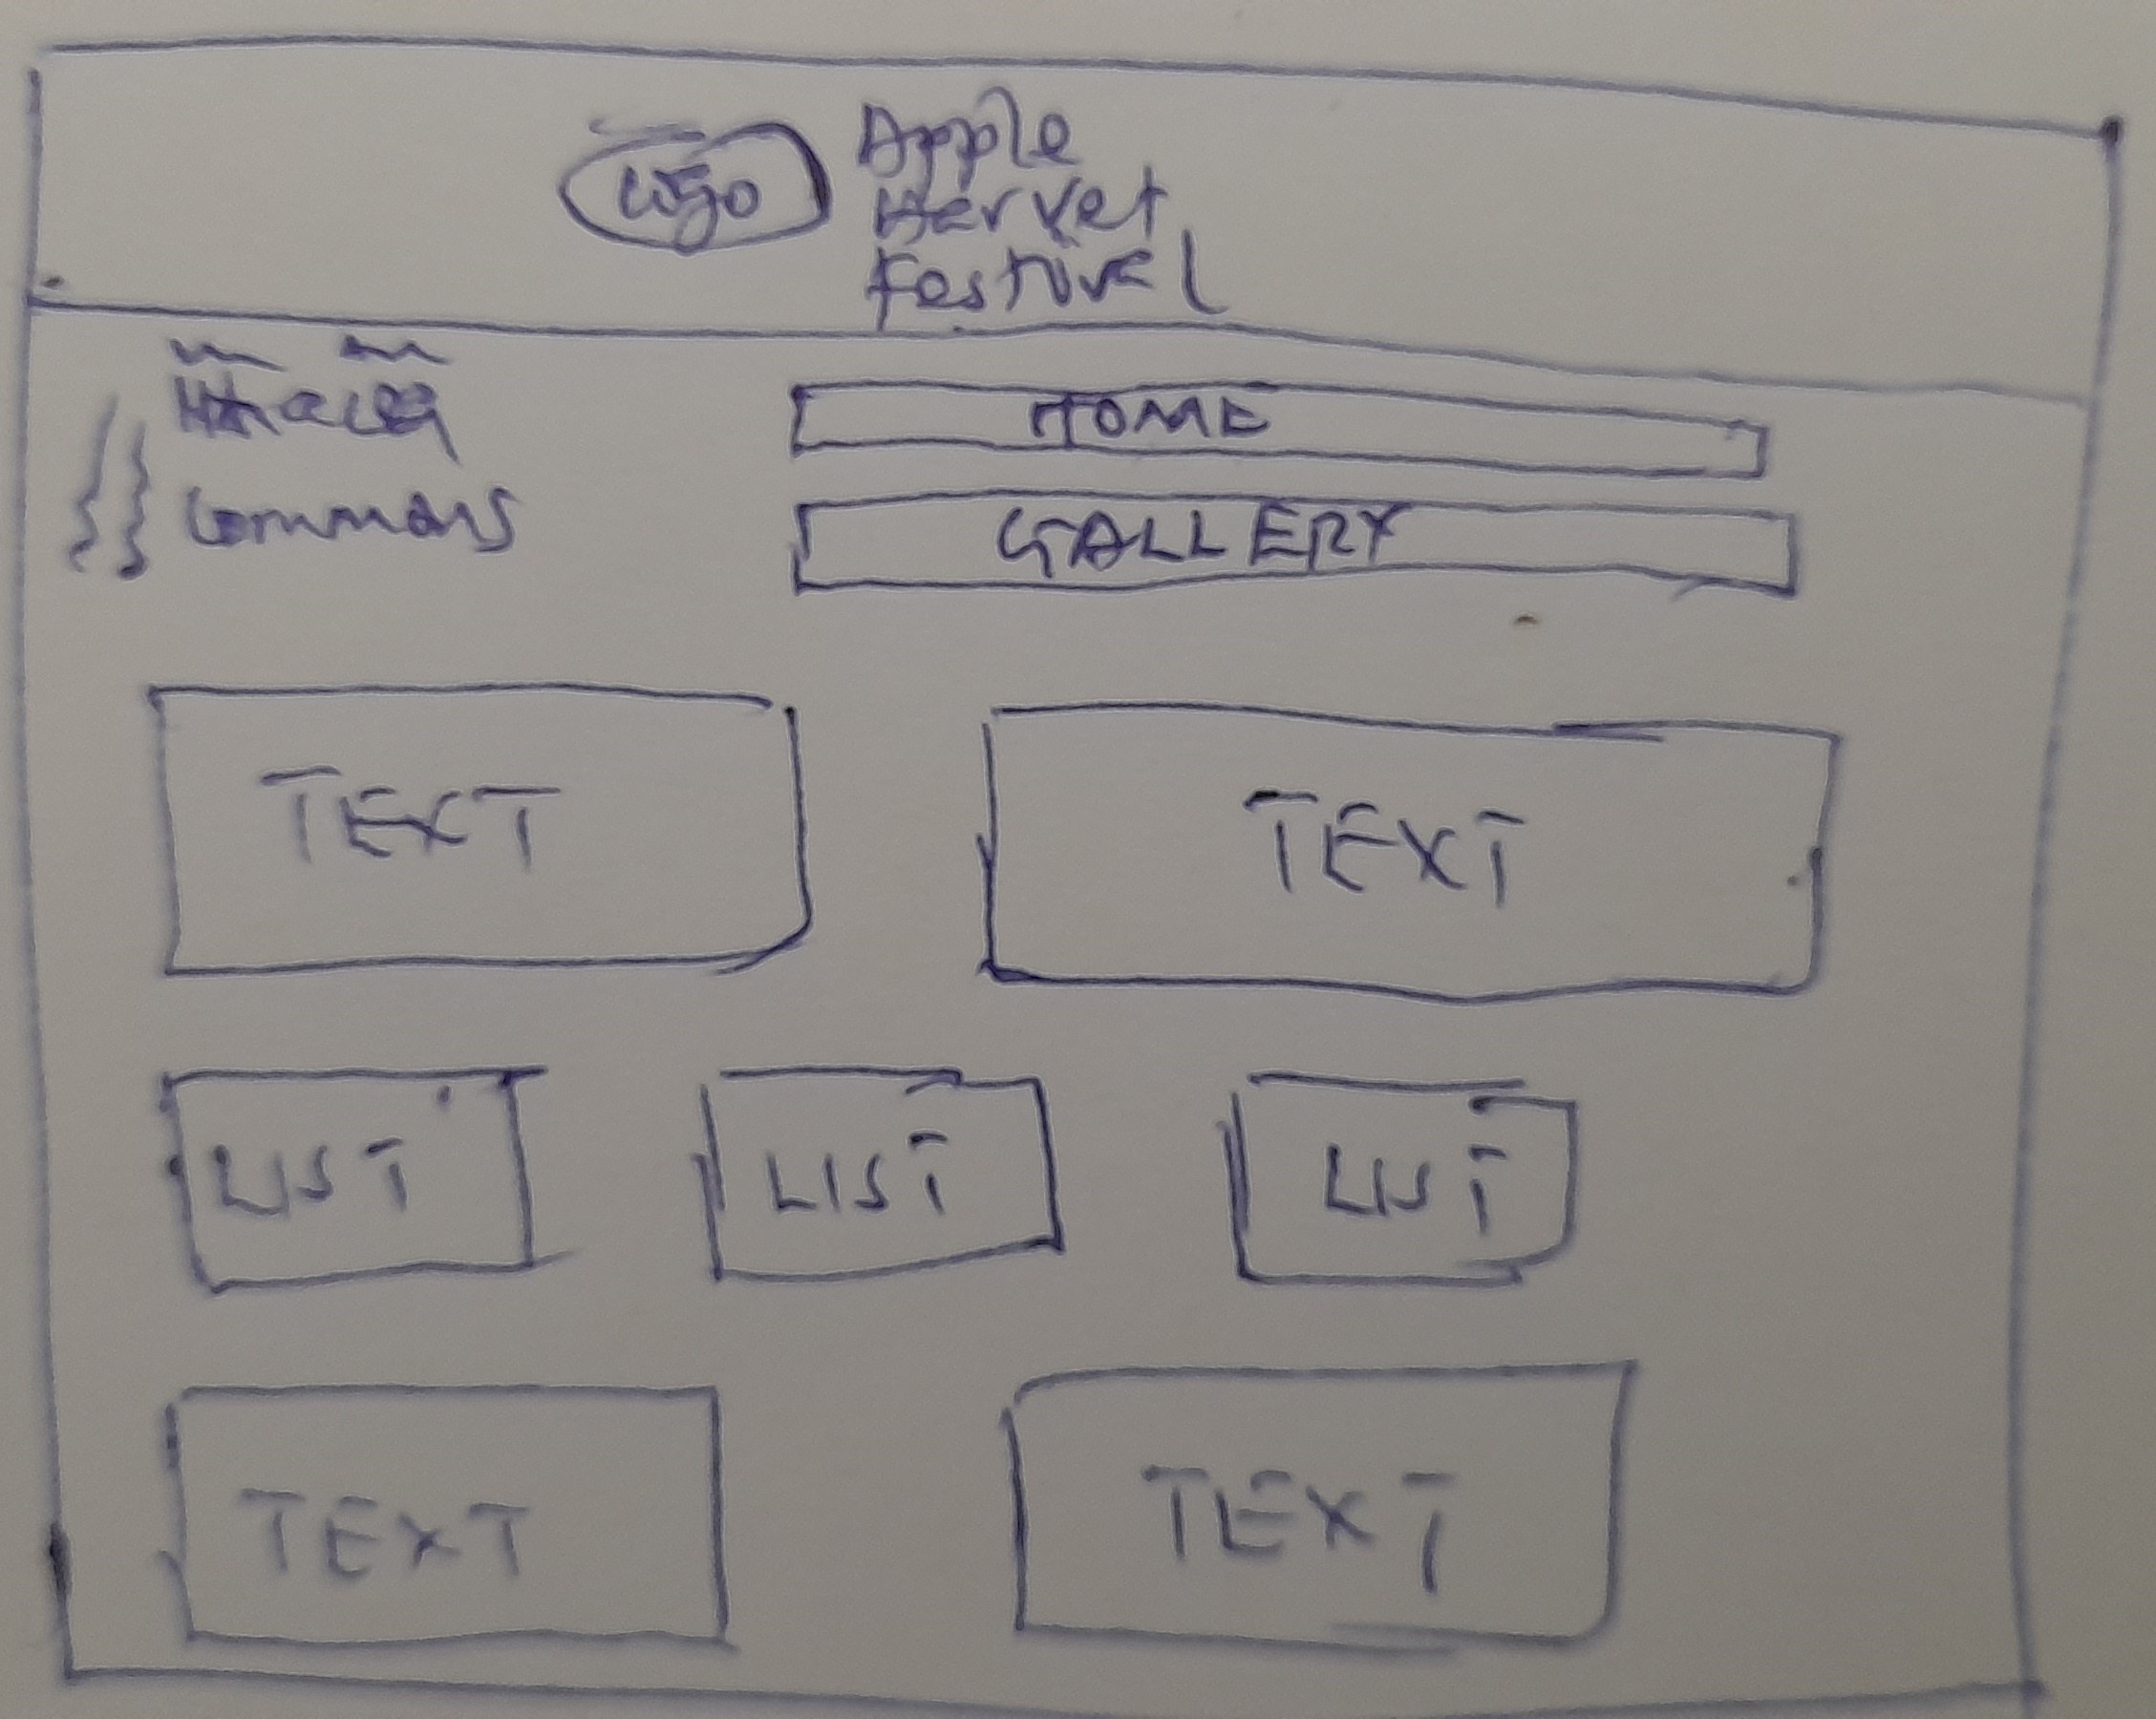 Logo
Apple
Harvet
Festivel
HOME
Commons
GALLERY
TEXT TEXT
LIST LIST LIST
TEXT TEXT